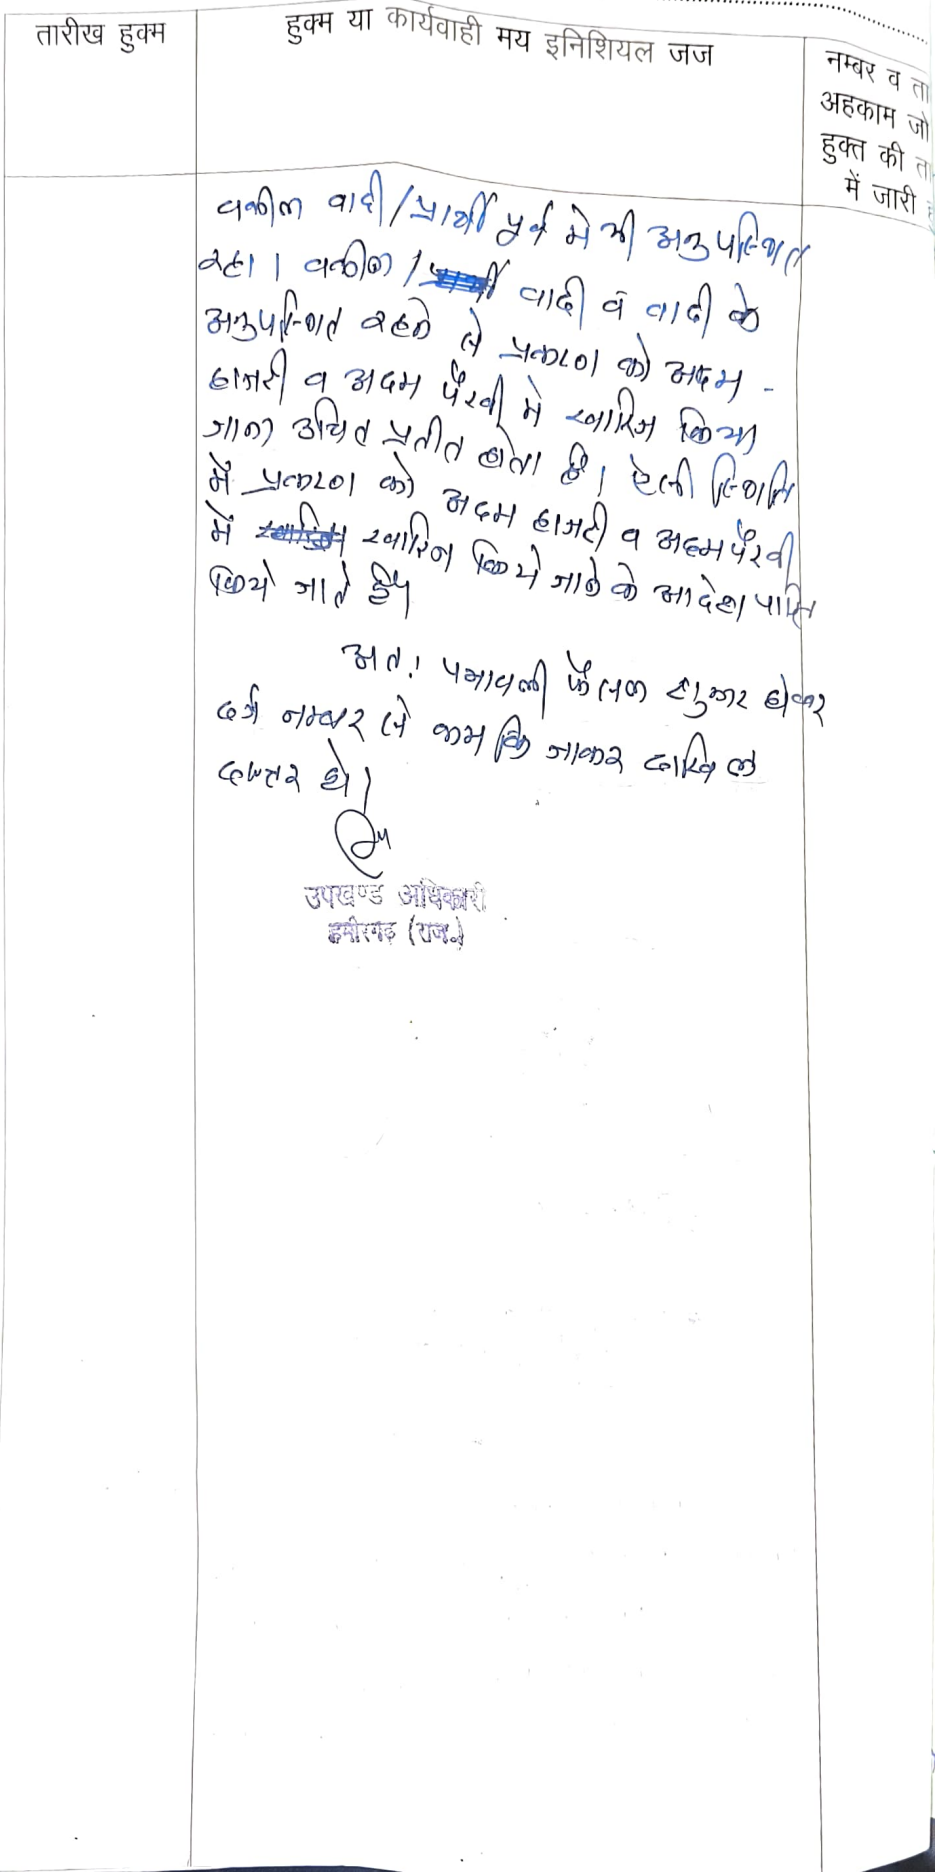 तारीख हुक्म
हुक्म या कार्यवाही मय इनिशियल जज
नम्बर व ता
अहकाम जो
हुक्त की ता
में जारी
वकील वादी/प्रार्थी पूर्व मे भी अनुपस्थित
रहा। वकील/ वादी व वादी के
अनुपस्थित रहने से प्रकरण को अदम -
हाजरी व अदम पैरवी मे खारिज किया
जाना उचित प्रतीत होता है। ऐसी स्थिति
में प्रकरण को अदम हाजरी व अदम पैरवी
में खारिज किये जाने के आदेश पारित
किये जाते है।
अत: पत्रावली फैसल शुमार होकर
दर्ज नम्बर से कम कि जाकर दाखिल
दफ्तर हो।
उपखण्ड अधिकारी
हमीरगढ़ (राज.)